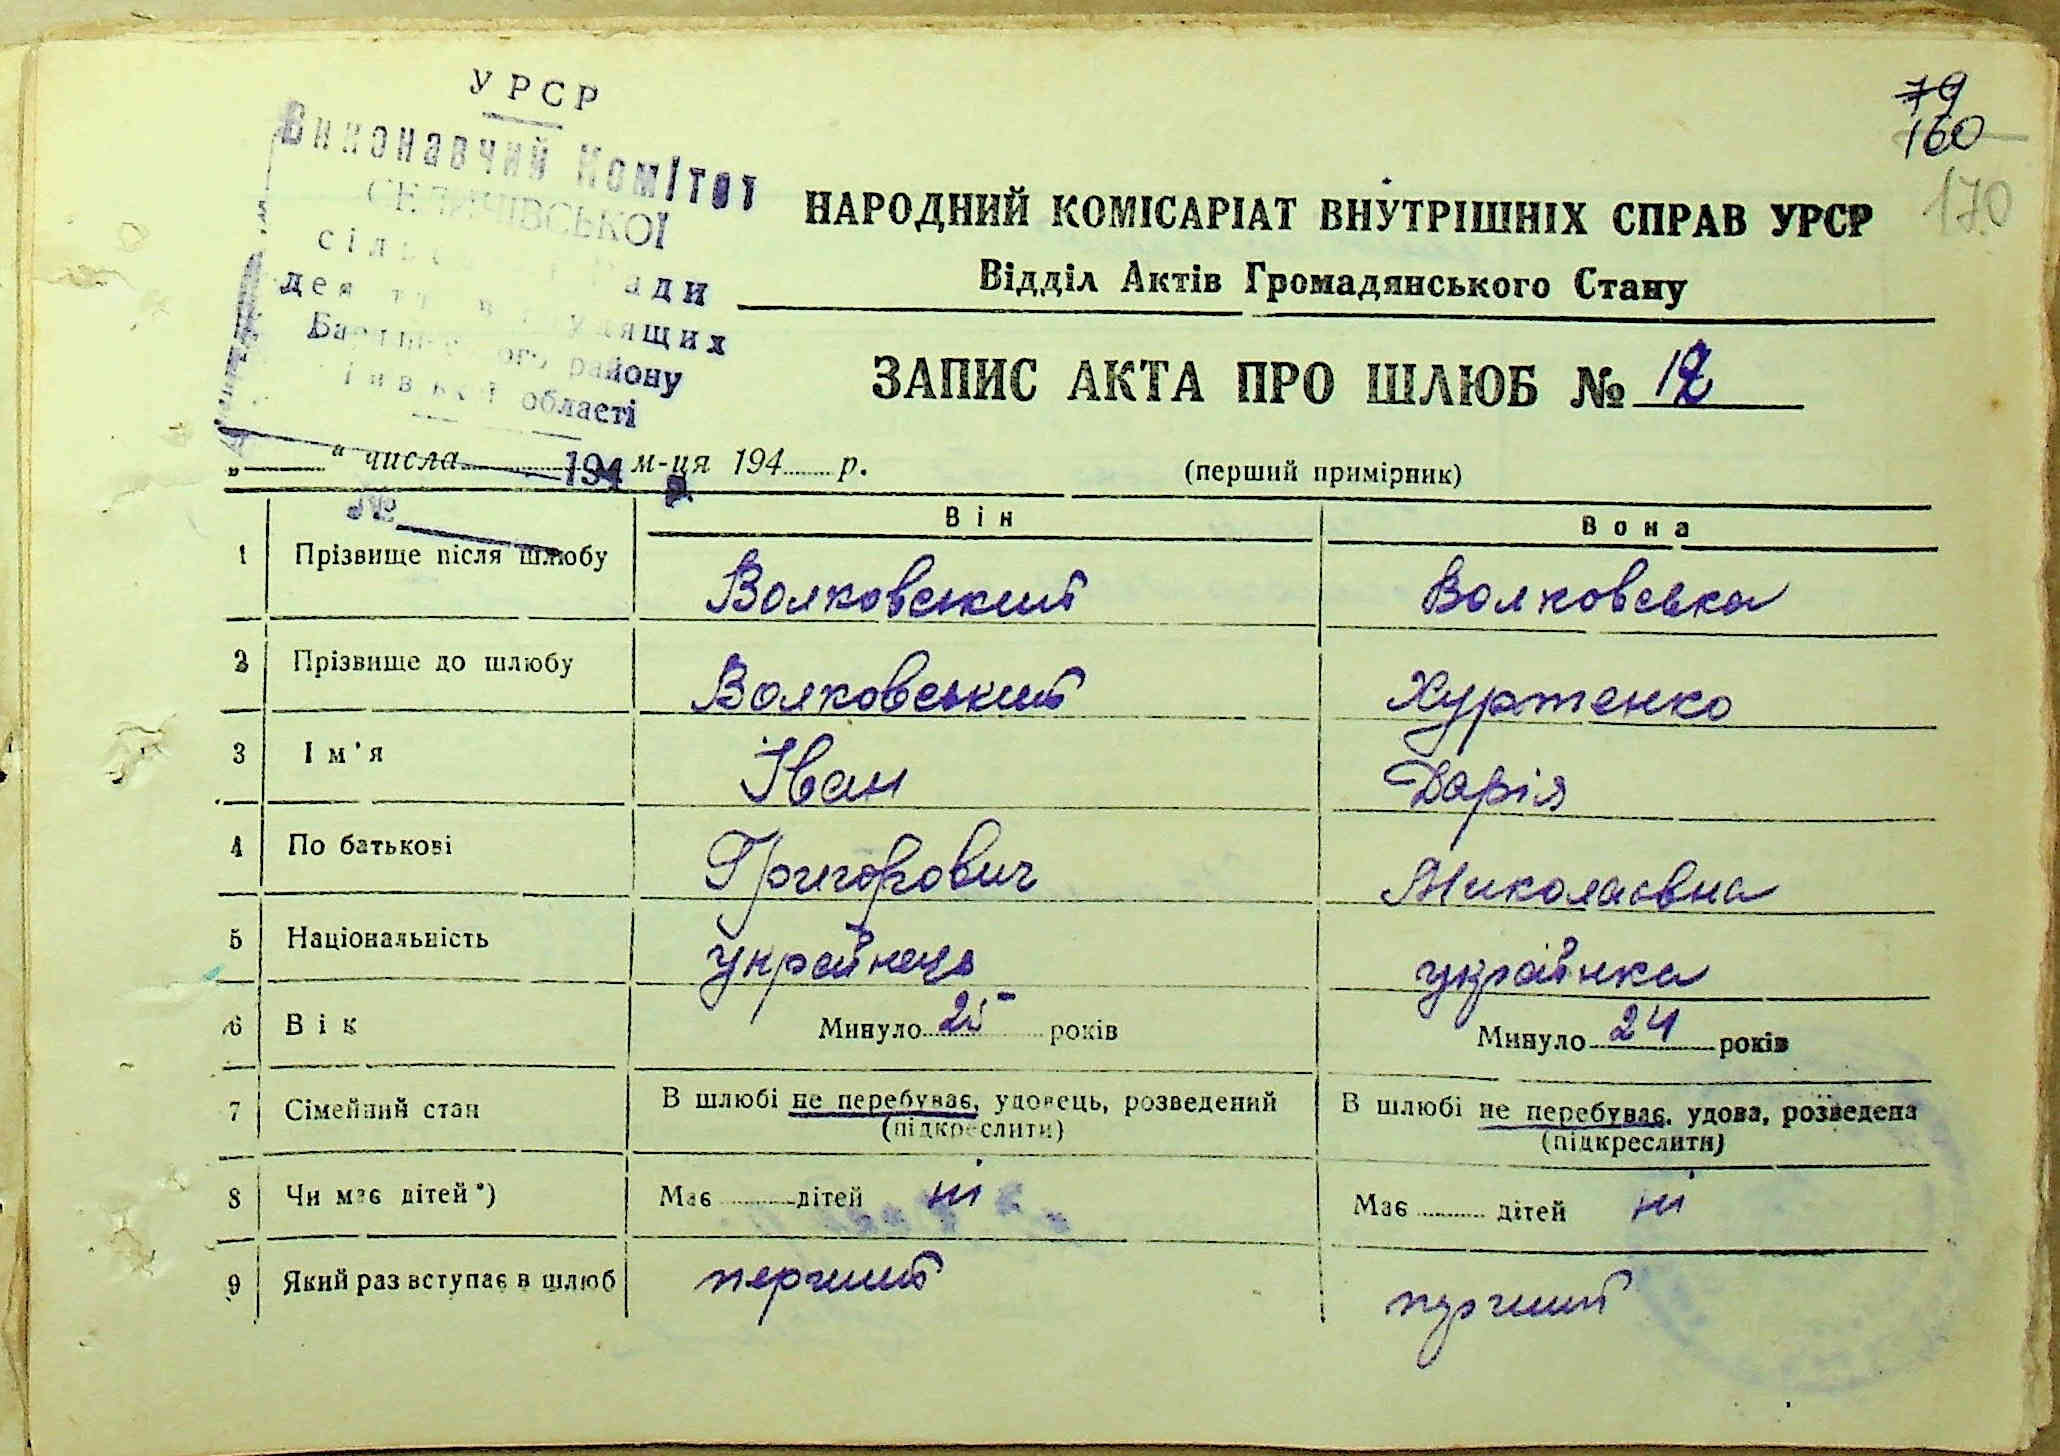 79
160
170
УРСР
Виконавчий Комітет
СЕЛИЧІВСЬКОЇ
сільської Ради
трудящих
району
області
194 р.
№
НАРОДНИЙ КОМІСАРІАТ ВНУТРІШНІХ СПРАВ УРСР
Відділ Актів Громадянського Стану
ЗАПИС АКТА ПРО ШЛЮБ № 12
„ “ числа м-ця 194 р.
(перший примірник)
Він Вона
1 Прізвище після шлюбу Волковський Волковська
2 Прізвище до шлюбу Волковський Хуртенко
3 Ім'я Іван Дарія
4 По батькові Григорович Миколаєвна
5 Національність українець українка
6 Вік Минуло 25 років Минуло 24 років
7 Сімейний стан В шлюбі не перебуває, удовець, розведений В шлюбі не перебуває, удова, розведена
(підкреслити) (підкреслити)
8 Чи має дітей*) Має дітей ні Має дітей ні
9 Який раз вступає в шлюб перший перший